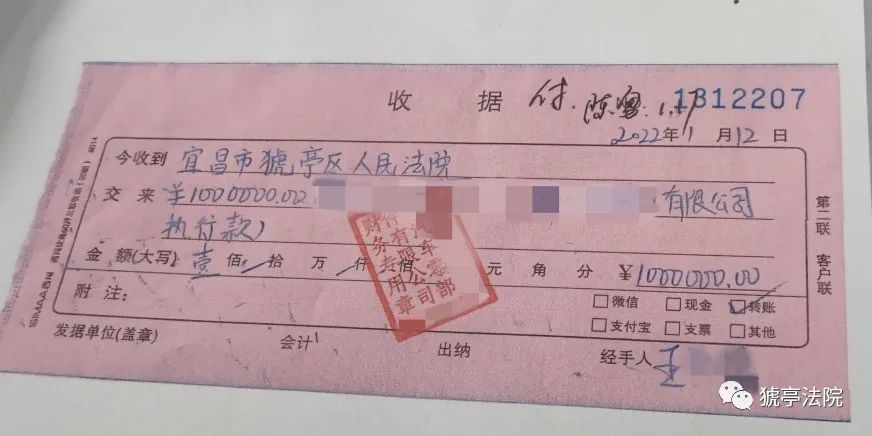 收 据 付. 陈 1.17 1312207
2022年1月12日
今收到 宜昌市猇亭区人民法院
交 来 ¥1000000.00 有限公司
执行款)
金 额(大写) 壹 佰 拾 万 仟 佰 元 角 分 ¥1000000.00
附 注:
微信 现金 转账
支付宝 支票 其他
发据单位(盖章) 会计 出纳 经手人 王
第二联 客户联
SIMAA西玛
件有汽车零部
限公司
财务专用章
猇亭法院